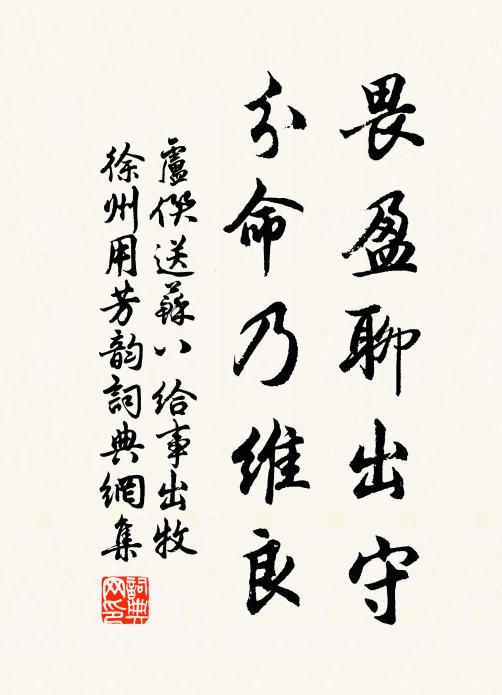 畏盈聊出守
分命乃維良
盧僎送蘇八給事出牧
徐州用芳韵詞典網集
詞典网印